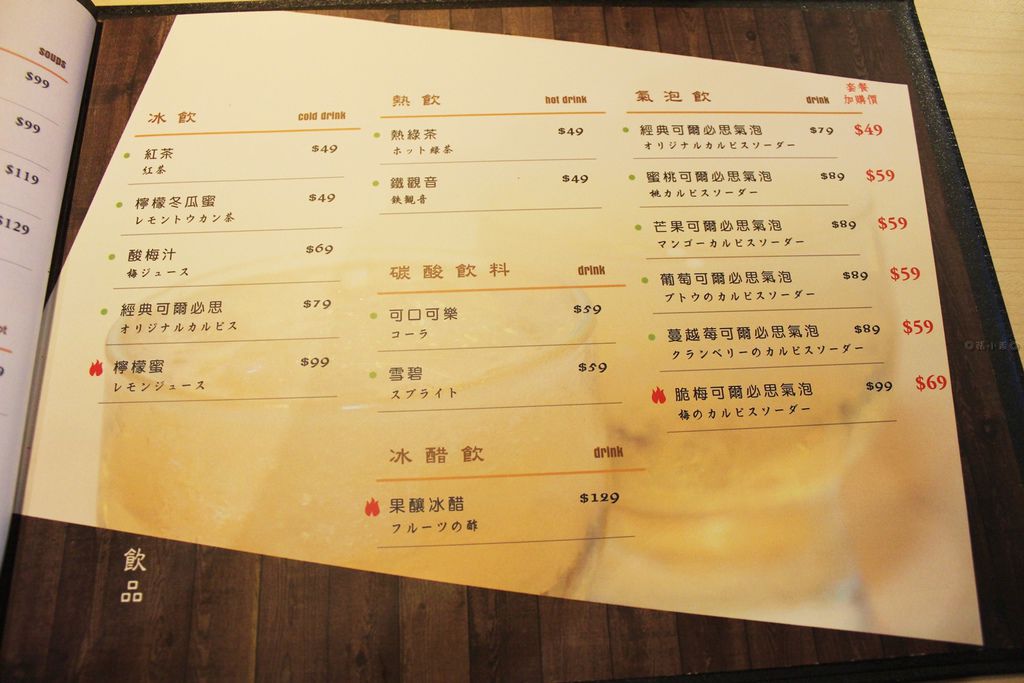 soups
$99
$99
$119
$129
冰飲 cold drink
紅茶 $49
紅茶
檸檬冬瓜蜜 $49
レモントウカン茶
酸梅汁 $69
梅ジュース
經典可爾必思 $79
オリジナルカルピス
檸檬蜜 $99
レモンジュース
熱飲 hot drink
熱綠茶 $49
ホット緑茶
鐵觀音 $49
鉄観音
碳酸飲料 drink
可口可樂 $59
コーラ
雪碧 $59
スプライト
冰醋飲 drink
果釀冰醋 $129
フルーツの酢
氣泡飲 drink 套餐
加購價
經典可爾必思氣泡 $79 $49
オリジナルカルピスソーダー
蜜桃可爾必思氣泡 $89 $59
桃カルピスソーダー
芒果可爾必思氣泡 $89 $59
マンゴーカルピスソーダー
葡萄可爾必思氣泡 $89 $59
ブトウのカルピスソーダー
蔓越莓可爾必思氣泡 $89 $59
クランベリーのカルピスソーダー
脆梅可爾必思氣泡 $99 $69
梅のカルピスソーダー
飲品